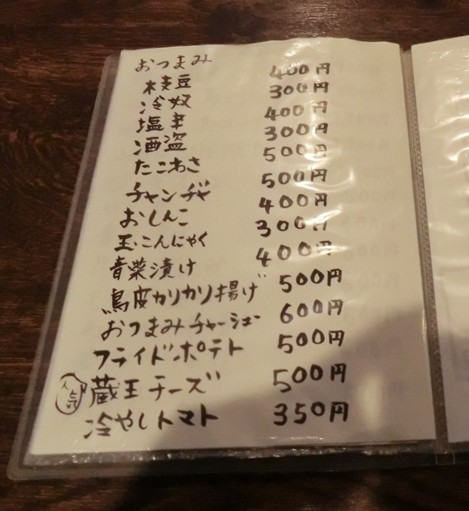 おつまみ
枝豆 400円
冷奴 300円
塩辛 400円
酒盗 300円
たこわさ 500円
チャンヂャ 500円
おしんこ 400円
玉こんにゃく 300円
青菜漬け 400円
鳥皮カリカリ揚げ 500円
おつまみチャーシュー 600円
フライドポテト 500円
人気 蔵王チーズ 500円
冷やしトマト 350円